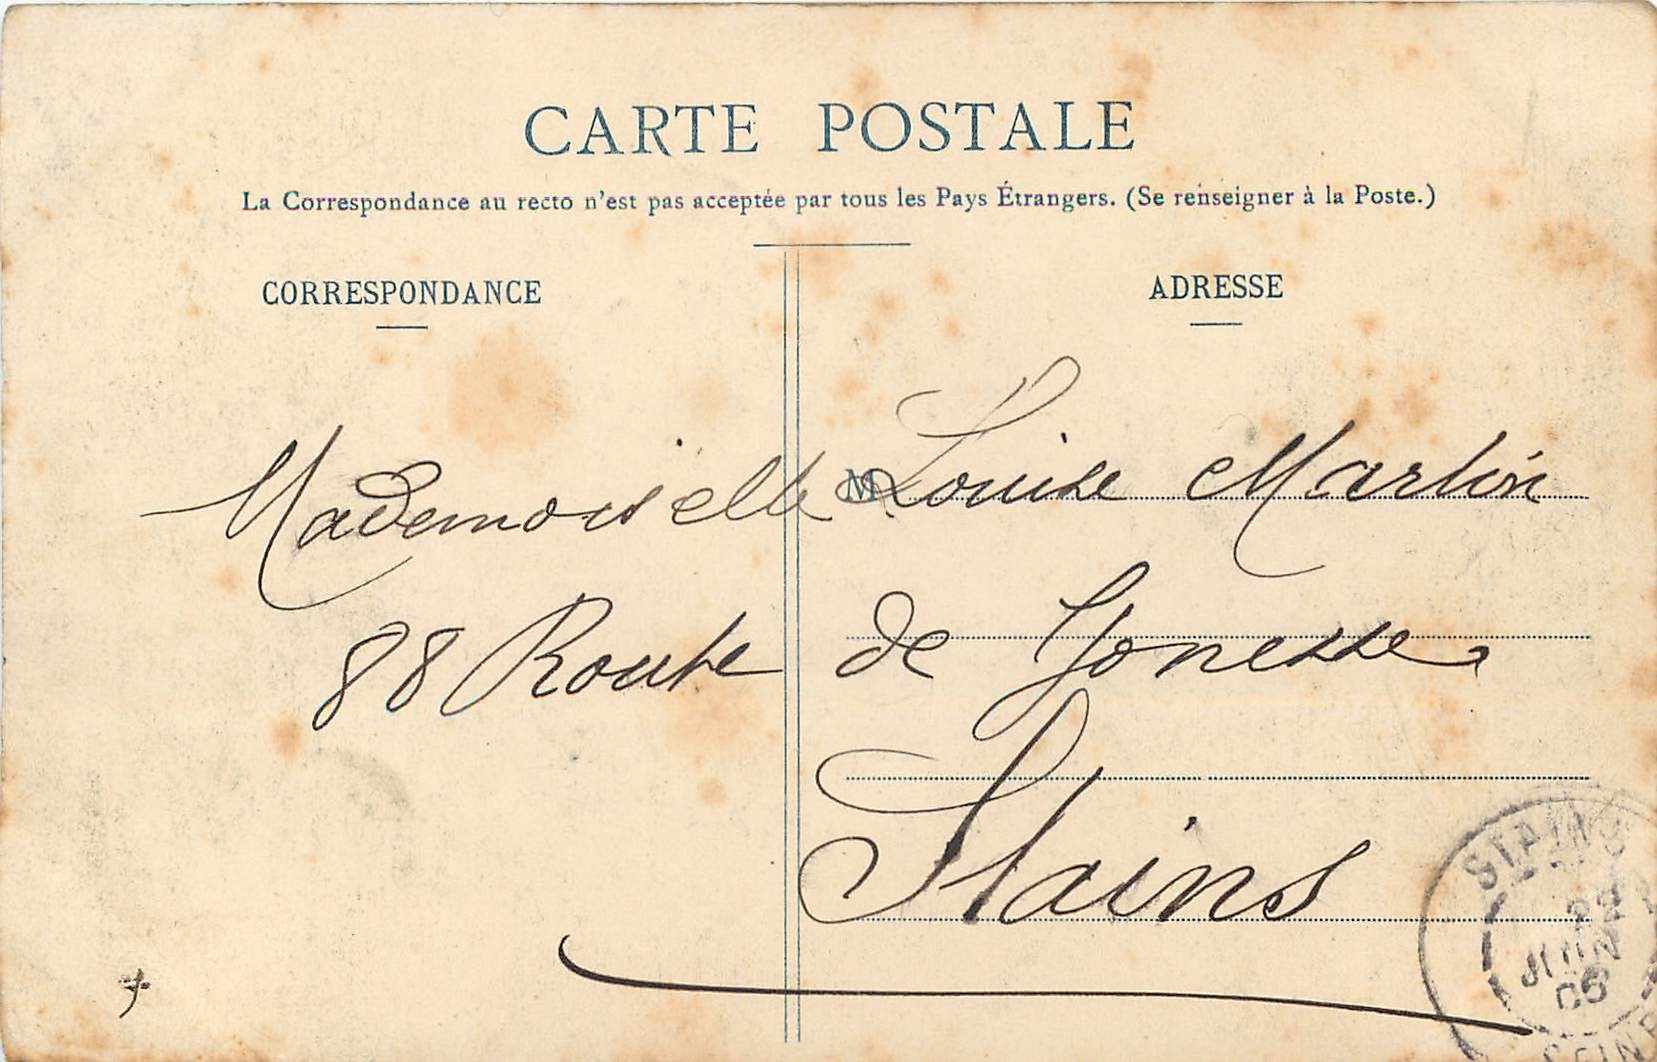 CARTE POSTALE
La Correspondance au recto n'est pas acceptée par tous les Pays Étrangers. (Se renseigner à la Poste.)
CORRESPONDANCE
ADRESSE
M
Mademoiselle Louise Martin
88 Route de Gonesse
Stains
STAINS
22
JUIN
06
SEINE